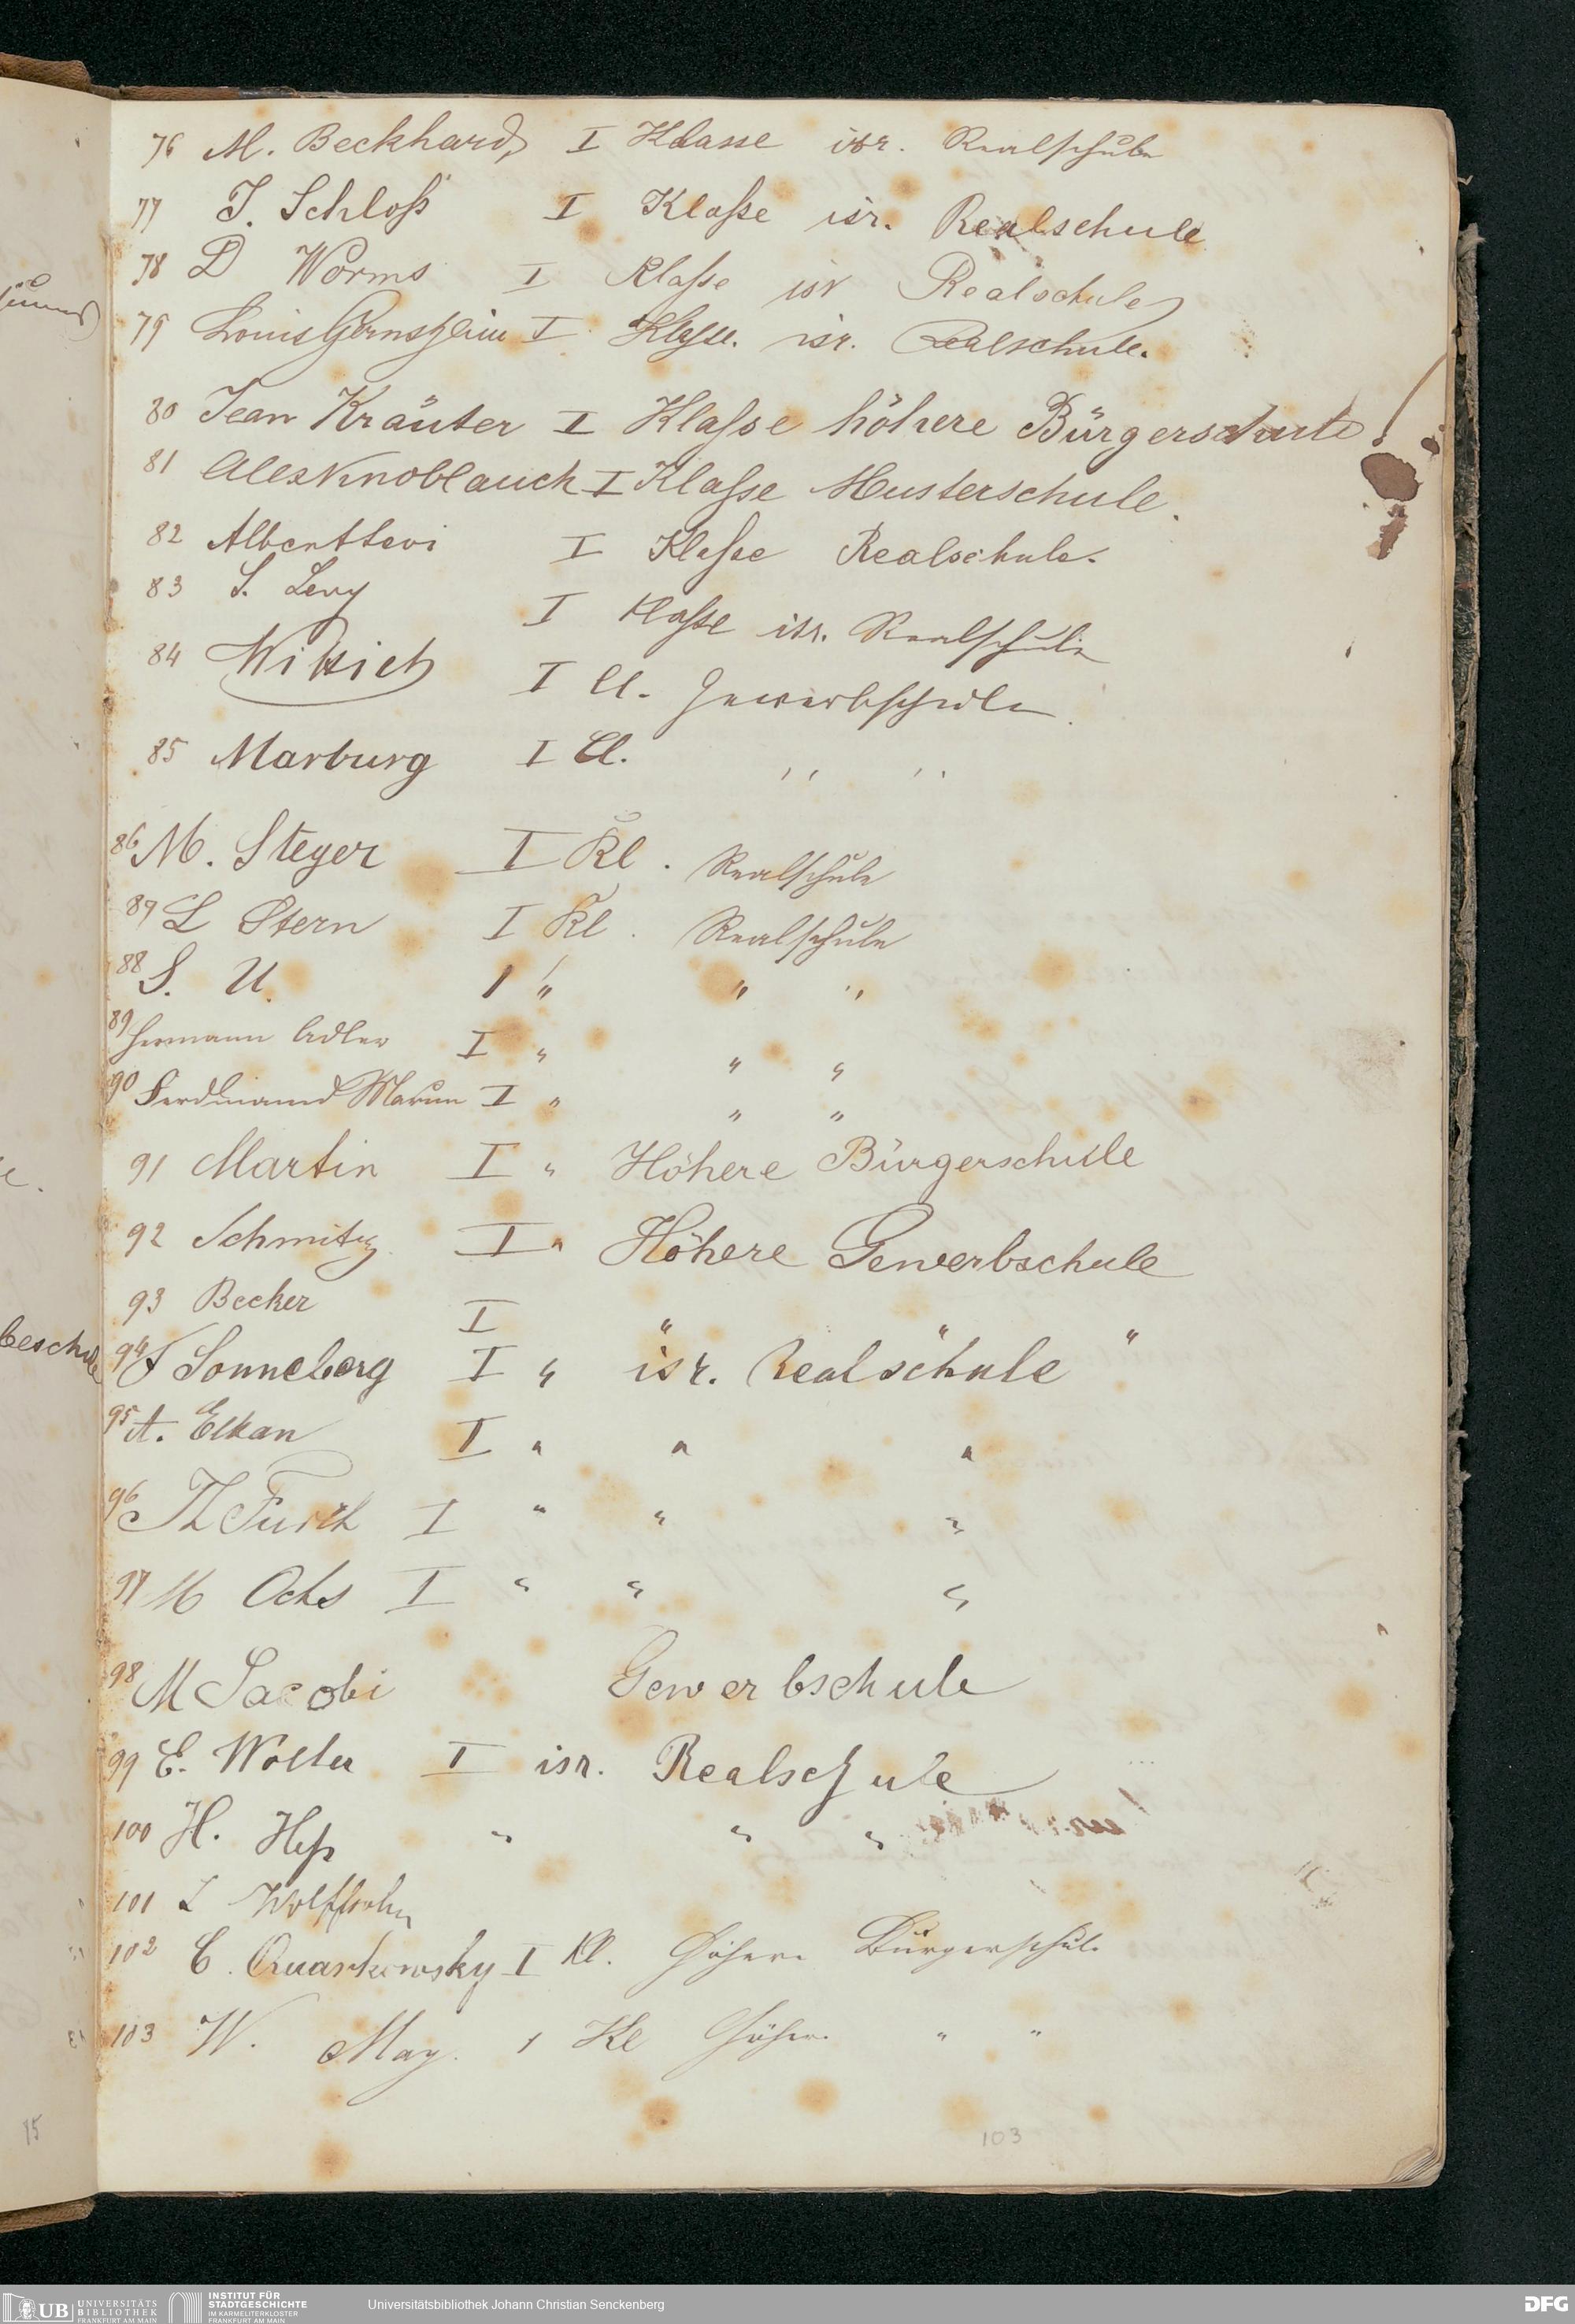 76 M. Beckhard, I Klasse isr. Realschule
77 J. Schloß I Klaße isr. Realschule
78 D Worms I Klaße isr Realschule
79 Louis Gernsheim I Klaße. isr. Realschule.
80 Jean Kräuter I Klaße höhere Bürgerschule!
81 Alex Knoblauch I Klaße Musterschule.
82 Albert Levi I Klaße Realschule.
83 S. Levy I Klaße isr. Realschule
84 Wittich I Cl. Gewerbschule.
85 Marburg I Cl. " "
86 M. Steyer I Kl. Realschule
87 L Stern I Kl. Realschule
88 S. U. I " " "
89 Hermann Adler I " " "
90 Ferdinand Marum I " " "
91 Martin I " Höhere Bürgerschule
92 Schmitz I " Höhere Gewerbschule
93 Becker I " " "
94 Sonneberg I " isr. Realschule
95 A. Elkan I " " "
96 Th Furth I " " "
97 M Ochs I " " "
98 M Jacobi Gewerbschule
99 E. Wolter I isr. Realschule
100 H. Heß " " "
101 L Wolffsohn
102 C. Quarkowsky I Kl. Höhere Bürgerschule
103 W. May. 1 Kl Höhere " "
103
beschule
15
UB UNIVERSITÄTS BIBLIOTHEK FRANKFURT AM MAIN
INSTITUT FÜR STADTGESCHICHTE IM KARMELITERKLOSTER FRANKFURT AM MAIN
Universitätsbibliothek Johann Christian Senckenberg
DFG